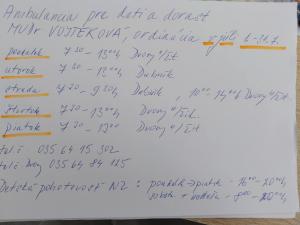 Ambulancia pre deti a dorast
MUDr VOJTEKOVÁ, ordinácia v júli 1.-31.7.
pondelok 7 30 - 13 00 h Dvory n/Žit.
utorok 7 30 - 12 00 h Dubník
streda 7 30 - 9 30 h Dubník - 10 00 - 14 00 h Dvory n/Žit.
štvrtok 7 30 - 13 00 h Dvory n/Žit.
piatok 7 30 - 13 00 Dvory n/Žit
tel č 035 64 15 302
tel č Dvory 035 64 84 125
Detská pohotovosť NZ : pondelok - piatok - 16 00 - 20 00 h
sobota + nedeľa - 8 00 - 20 00 h